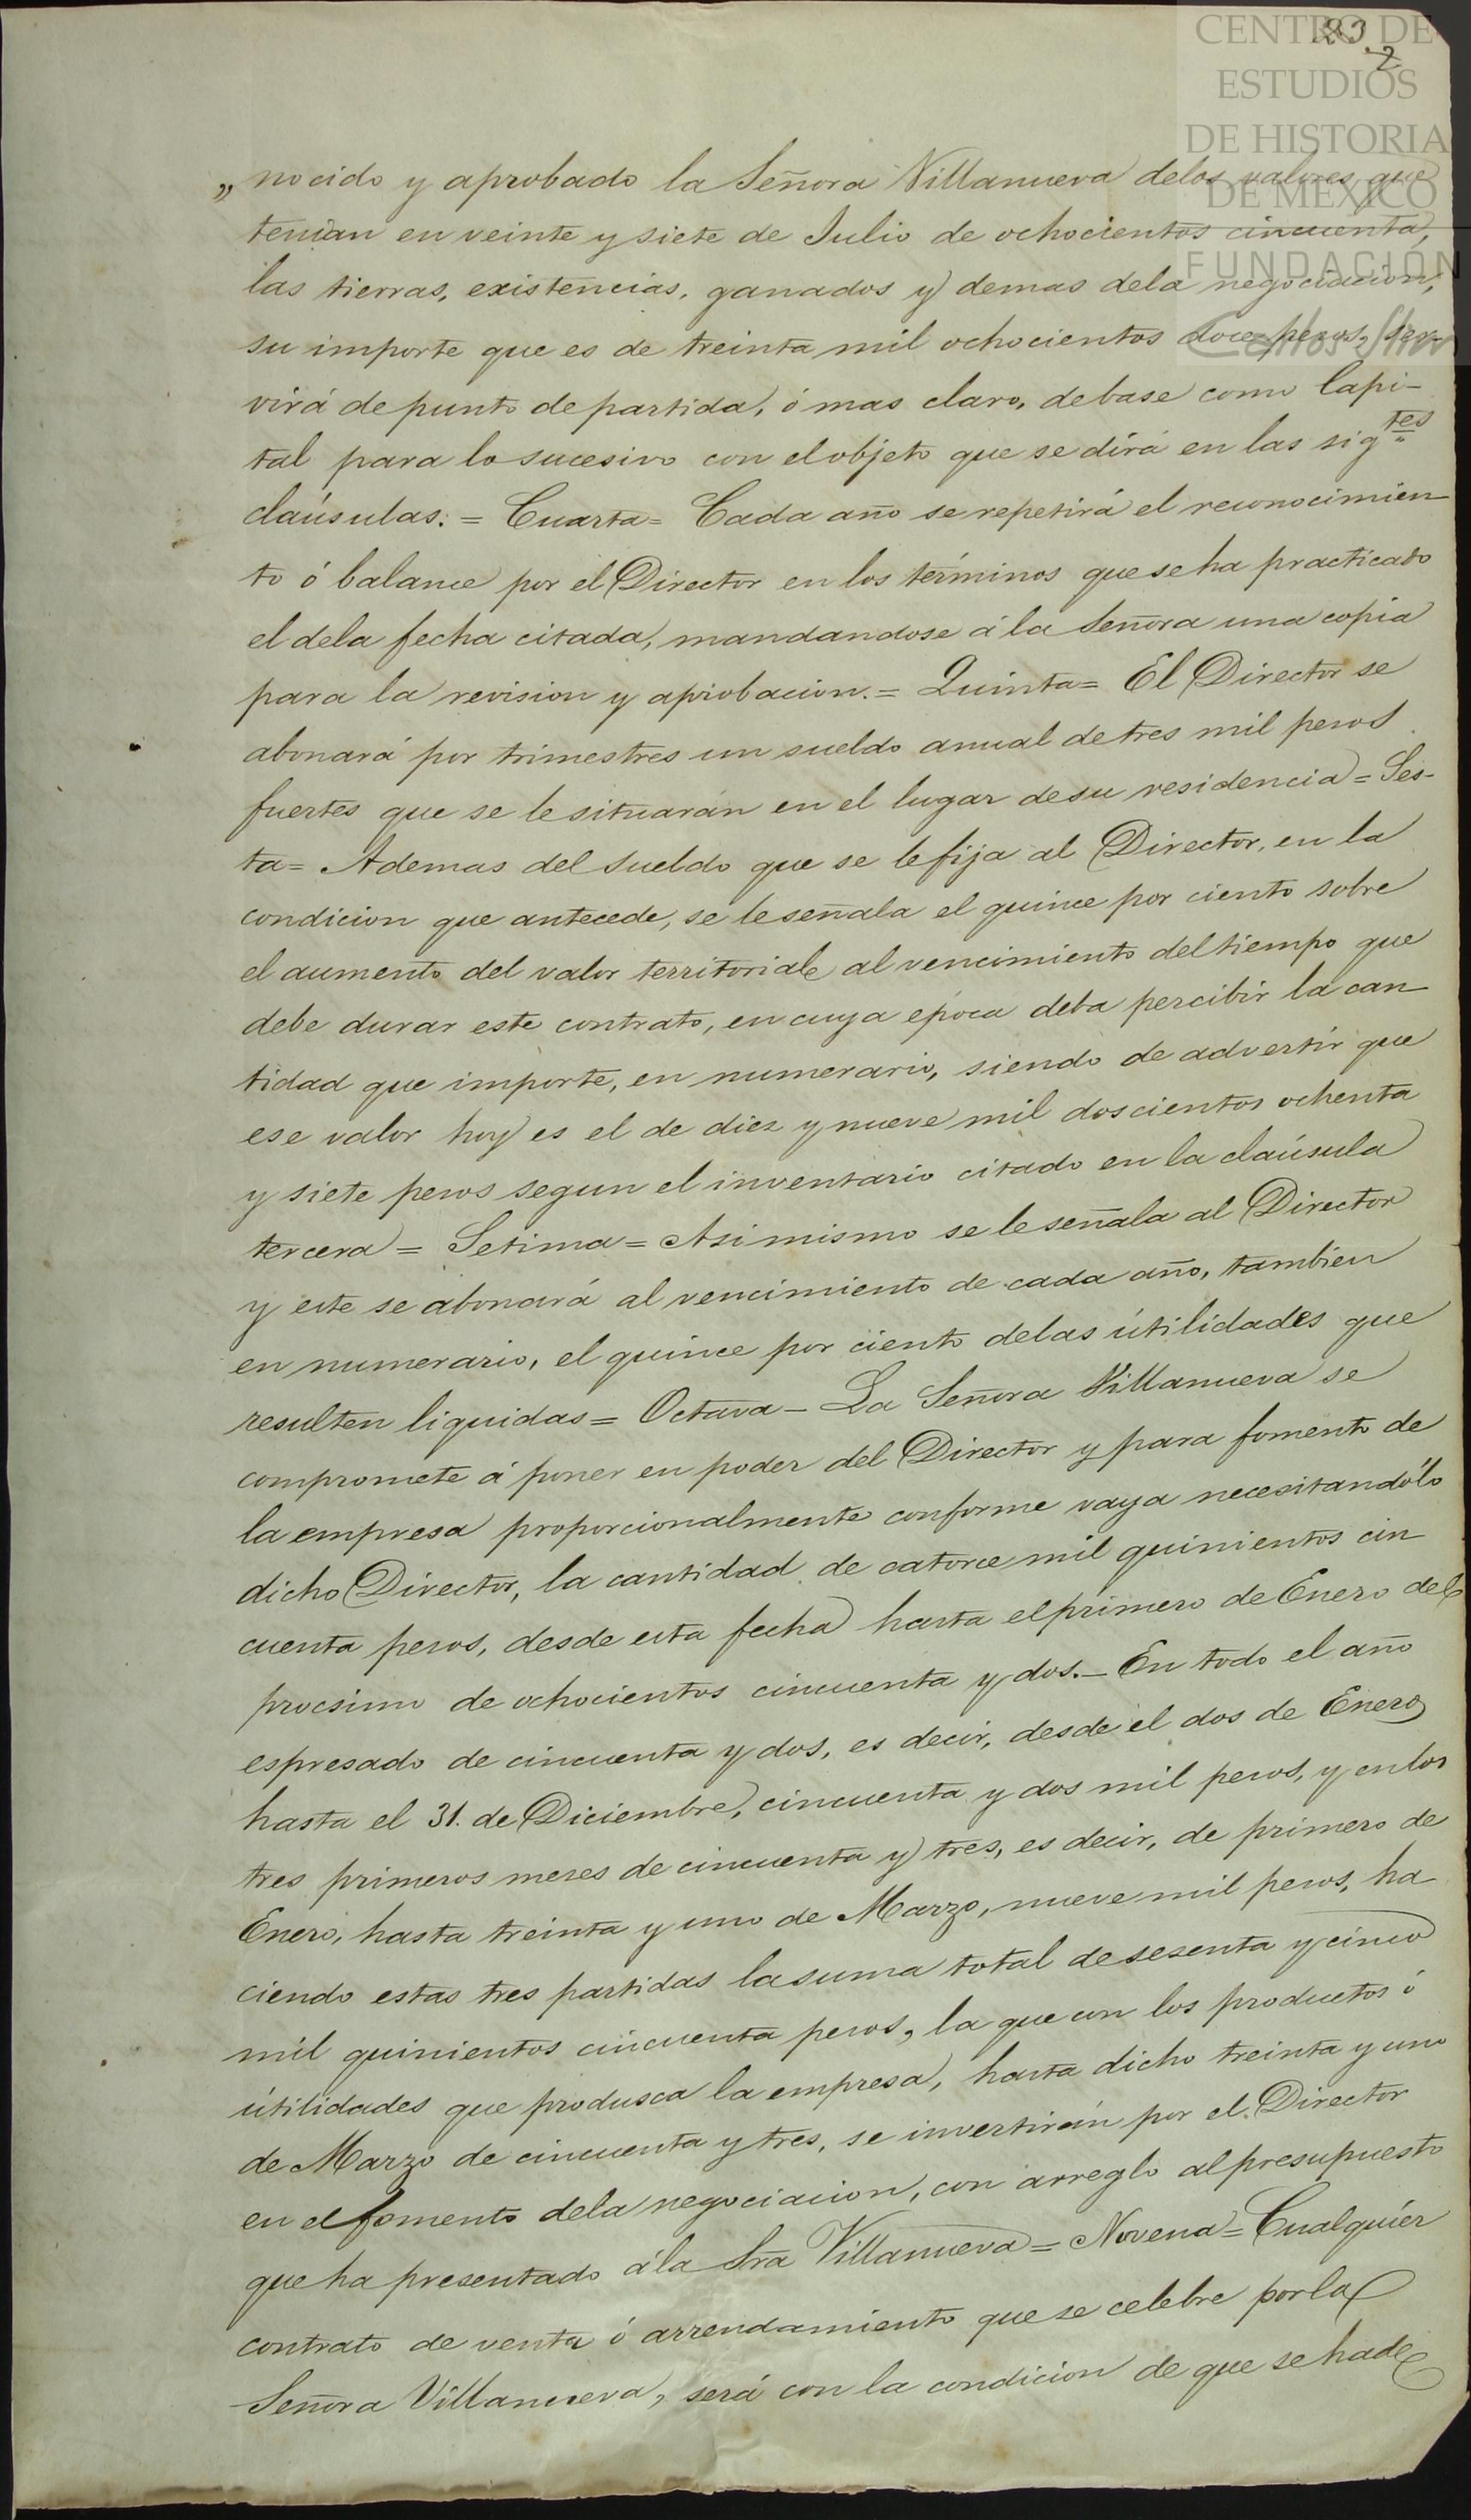 CENTRO DE
ESTUDIOS
DE HISTORIA
DE MÉXICO
FUNDACIÓN
Carlos Slim
2
„ nocido y aprobado la Señora Villanueva delos valores que
tenian en veinte y siete de Julio de ochocientos cincuenta,
las tierras, existencias, ganados y demas dela negociacion,
su importe que es de treinta mil ochocientos doce pesos, ser-
virá de punto de partida, ó mas claro, de base como Capi-
tal para lo sucesivo con el objeto que se dirá en las sigtes
claúsulas: = Cuarta = Cada año se repetirá el reconocimien-
to ó balance por el Director en los términos que se ha practicado
el dela fecha citada, mandandose á la Señora una copia
para la revision y aprobacion. = Quinta = El Director se
abonará por trimestres un sueldo anual de tres mil pesos
fuertes que se le situarán en el lugar de su residencia = Ses-
ta = Ademas del sueldo que se le fija al Director, en la
condicion que antecede, se le señala el quince por ciento sobre
el aumento del valor territorial al vencimiento del tiempo que
debe durar este contrato, en cuya época deba percibir la can-
tidad que importe, en numerario, siendo de advertir que
ese valor hoy es el de diez y nueve mil doscientos ochenta
y siete pesos segun el inventario citado en la claúsula
tercera = Setima = Asi mismo se le señala al Director
y este se abonará al vencimiento de cada año, tambien
en numerario, el quince por ciento delas útilidades que
resulten liquidas = Octava - La Señora Villanueva se
compromete á poner en poder del Director y para fomento de
la empresa proporcionalmente conforme vaya necesitandólo
dicho Director, la cantidad de catorce mil quinientos cin-
cuenta pesos, desde esta fecha hasta el primero de Enero del
procsimo de ochocientos cincuenta y dos. - En todo el año
espresado de cincuenta y dos, es decir, desde el dos de Enero
hasta el 31. de Diciembre, cincuenta y dos mil pesos, y en los
tres primeros meses de cincuenta y tres, es decir, de primero de
Enero, hasta treinta y uno de Marzo, nueve mil pesos, ha-
ciendo estas tres partidas la suma total de sesenta y cinco
mil quinientos cincuenta pesos, la que con los productos ó
útilidades que produsca la empresa, hasta dicho treinta y uno
de Marzo de cincuenta y tres, se invertirán por el Director
en el fomento dela negociacion, con arreglo al presupuesto
que ha presentado á la Sra Villanueva = Novena = Cualquiér
contrato de venta ó arrendamiento que se celebre por la
Señora Villanueva, será con la condicion de que se ha de